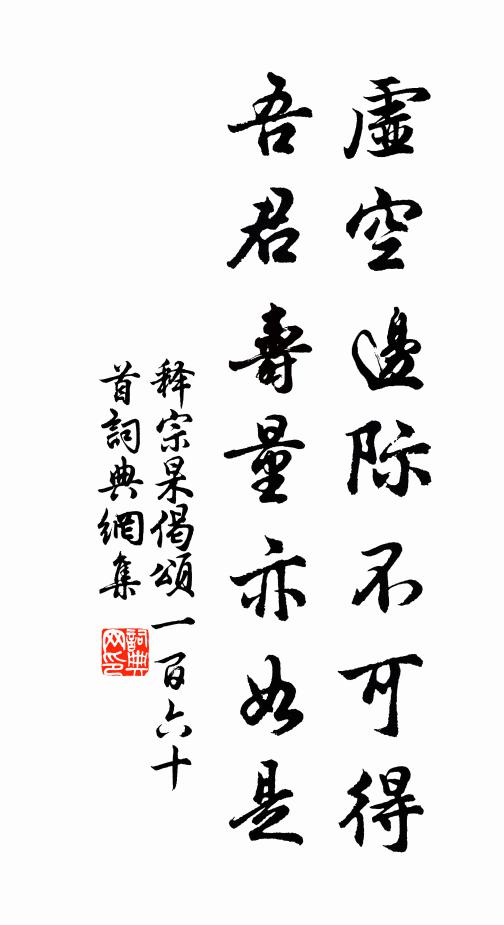 虛空邊際不可得
吾君壽量亦如是
释宗杲偈頌一百六十
首詞典網集
詞典网印